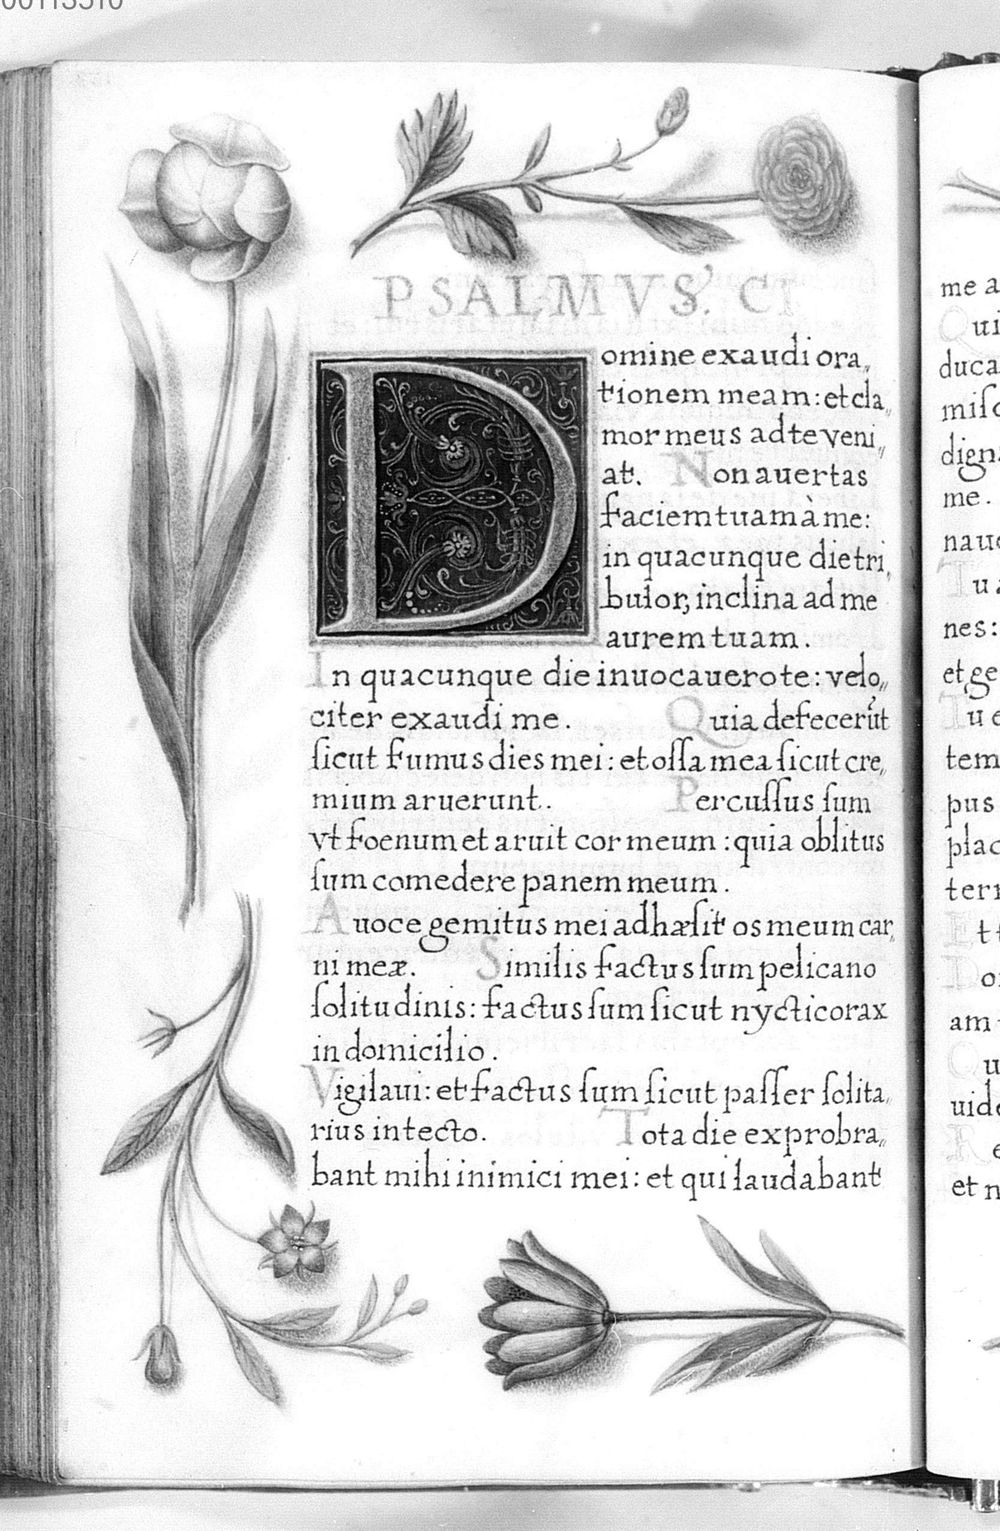 00113510
PSALMVS. CI
Domine exaudi ora„
tionem meam: et cla„
mor meus ad te veni„
at. Non auertas
faciem tuam à me:
in quacunque die tri„
bulor, inclina ad me
aurem tuam.
In quacunque die inuocauero te: velo„
citer exaudi me. Quia defecerūt
ſicut fumus dies mei: et oſſa mea ſicut cre„
mium aruerunt. Percuſſus ſum
vt foenum et aruit cor meum: quia oblitus
ſum comedere panem meum.
A uoce gemitus mei adhæſit os meum car„
ni meæ. Similis factus ſum pelicano
ſolitudinis: factus ſum ſicut nycticorax
in domicilio.
Vigilaui: et factus ſum ſicut paſſer ſolita„
rius in tecto. Tota die exprobra„
bant mihi inimici mei: et qui laudabant
me a
Qui
duca
miſc
digna
me.
naue
Tua
nes:
et ge
Tu e
tem
pus
plac
terr
Et t
Do
am
Qu
uide
Re
et n